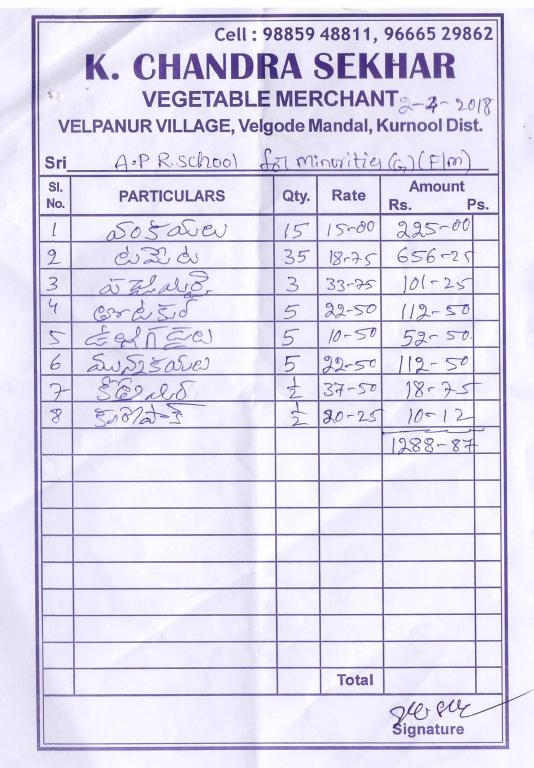 Cell : 98859 48811, 96665 29862
K. CHANDRA SEKHAR
VEGETABLE MERCHANT 2-4-2018
VELPANUR VILLAGE, Velgode Mandal, Kurnool Dist.
Sri A.P.R.School for minorities (G) (E/m)
Sl. No. PARTICULARS Qty. Rate Amount Rs. Ps.
1 వంకాయలు 15 15-00 225-00
2 టమోట 35 18-75 656-25
3 పచ్చిమిర్చి 3 33-75 101-25
4 5 22-50 112-50
5 ఉల్లిగడ్డలు 5 10-50 52-50
6 మునక్కాయలు 5 22-50 112-50
7 కొత్తిమీర 1/2 37-50 18-75
8 కరివేపాకు 1/2 20-25 10-12
1288-87
Total
Signature